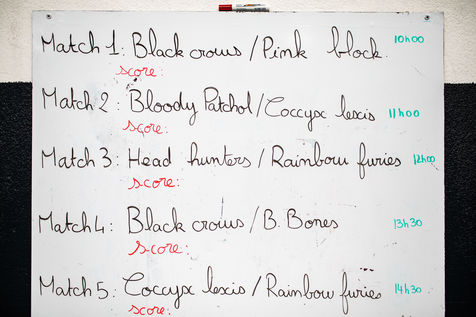 Match 1: Black crows / Pink block. 10h00
score:
Match 2: Bloody Patchol / Coccyx lexis 11h00
score:
Match 3: Head hunters / Rainbow furies 12h00
score:
Match 4: Black crows / B. Bones 13h30
score:
Match 5: Coccyx lexis / Rainbow furies 14h30
score: